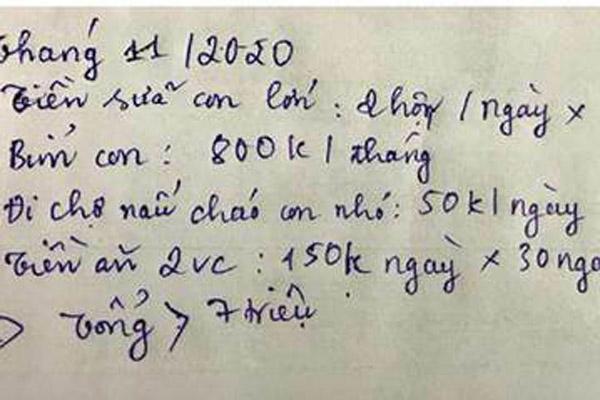 tháng 11/2020
Tiền sữa con lớn: 2 hộp/ngày x
Bỉm con: 800k/tháng
Đi chợ nấu cháo con nhỏ: 50k/ngày
Tiền ăn 2vc: 150k ngày x 30 ngà
> Tổng > 7 triệu